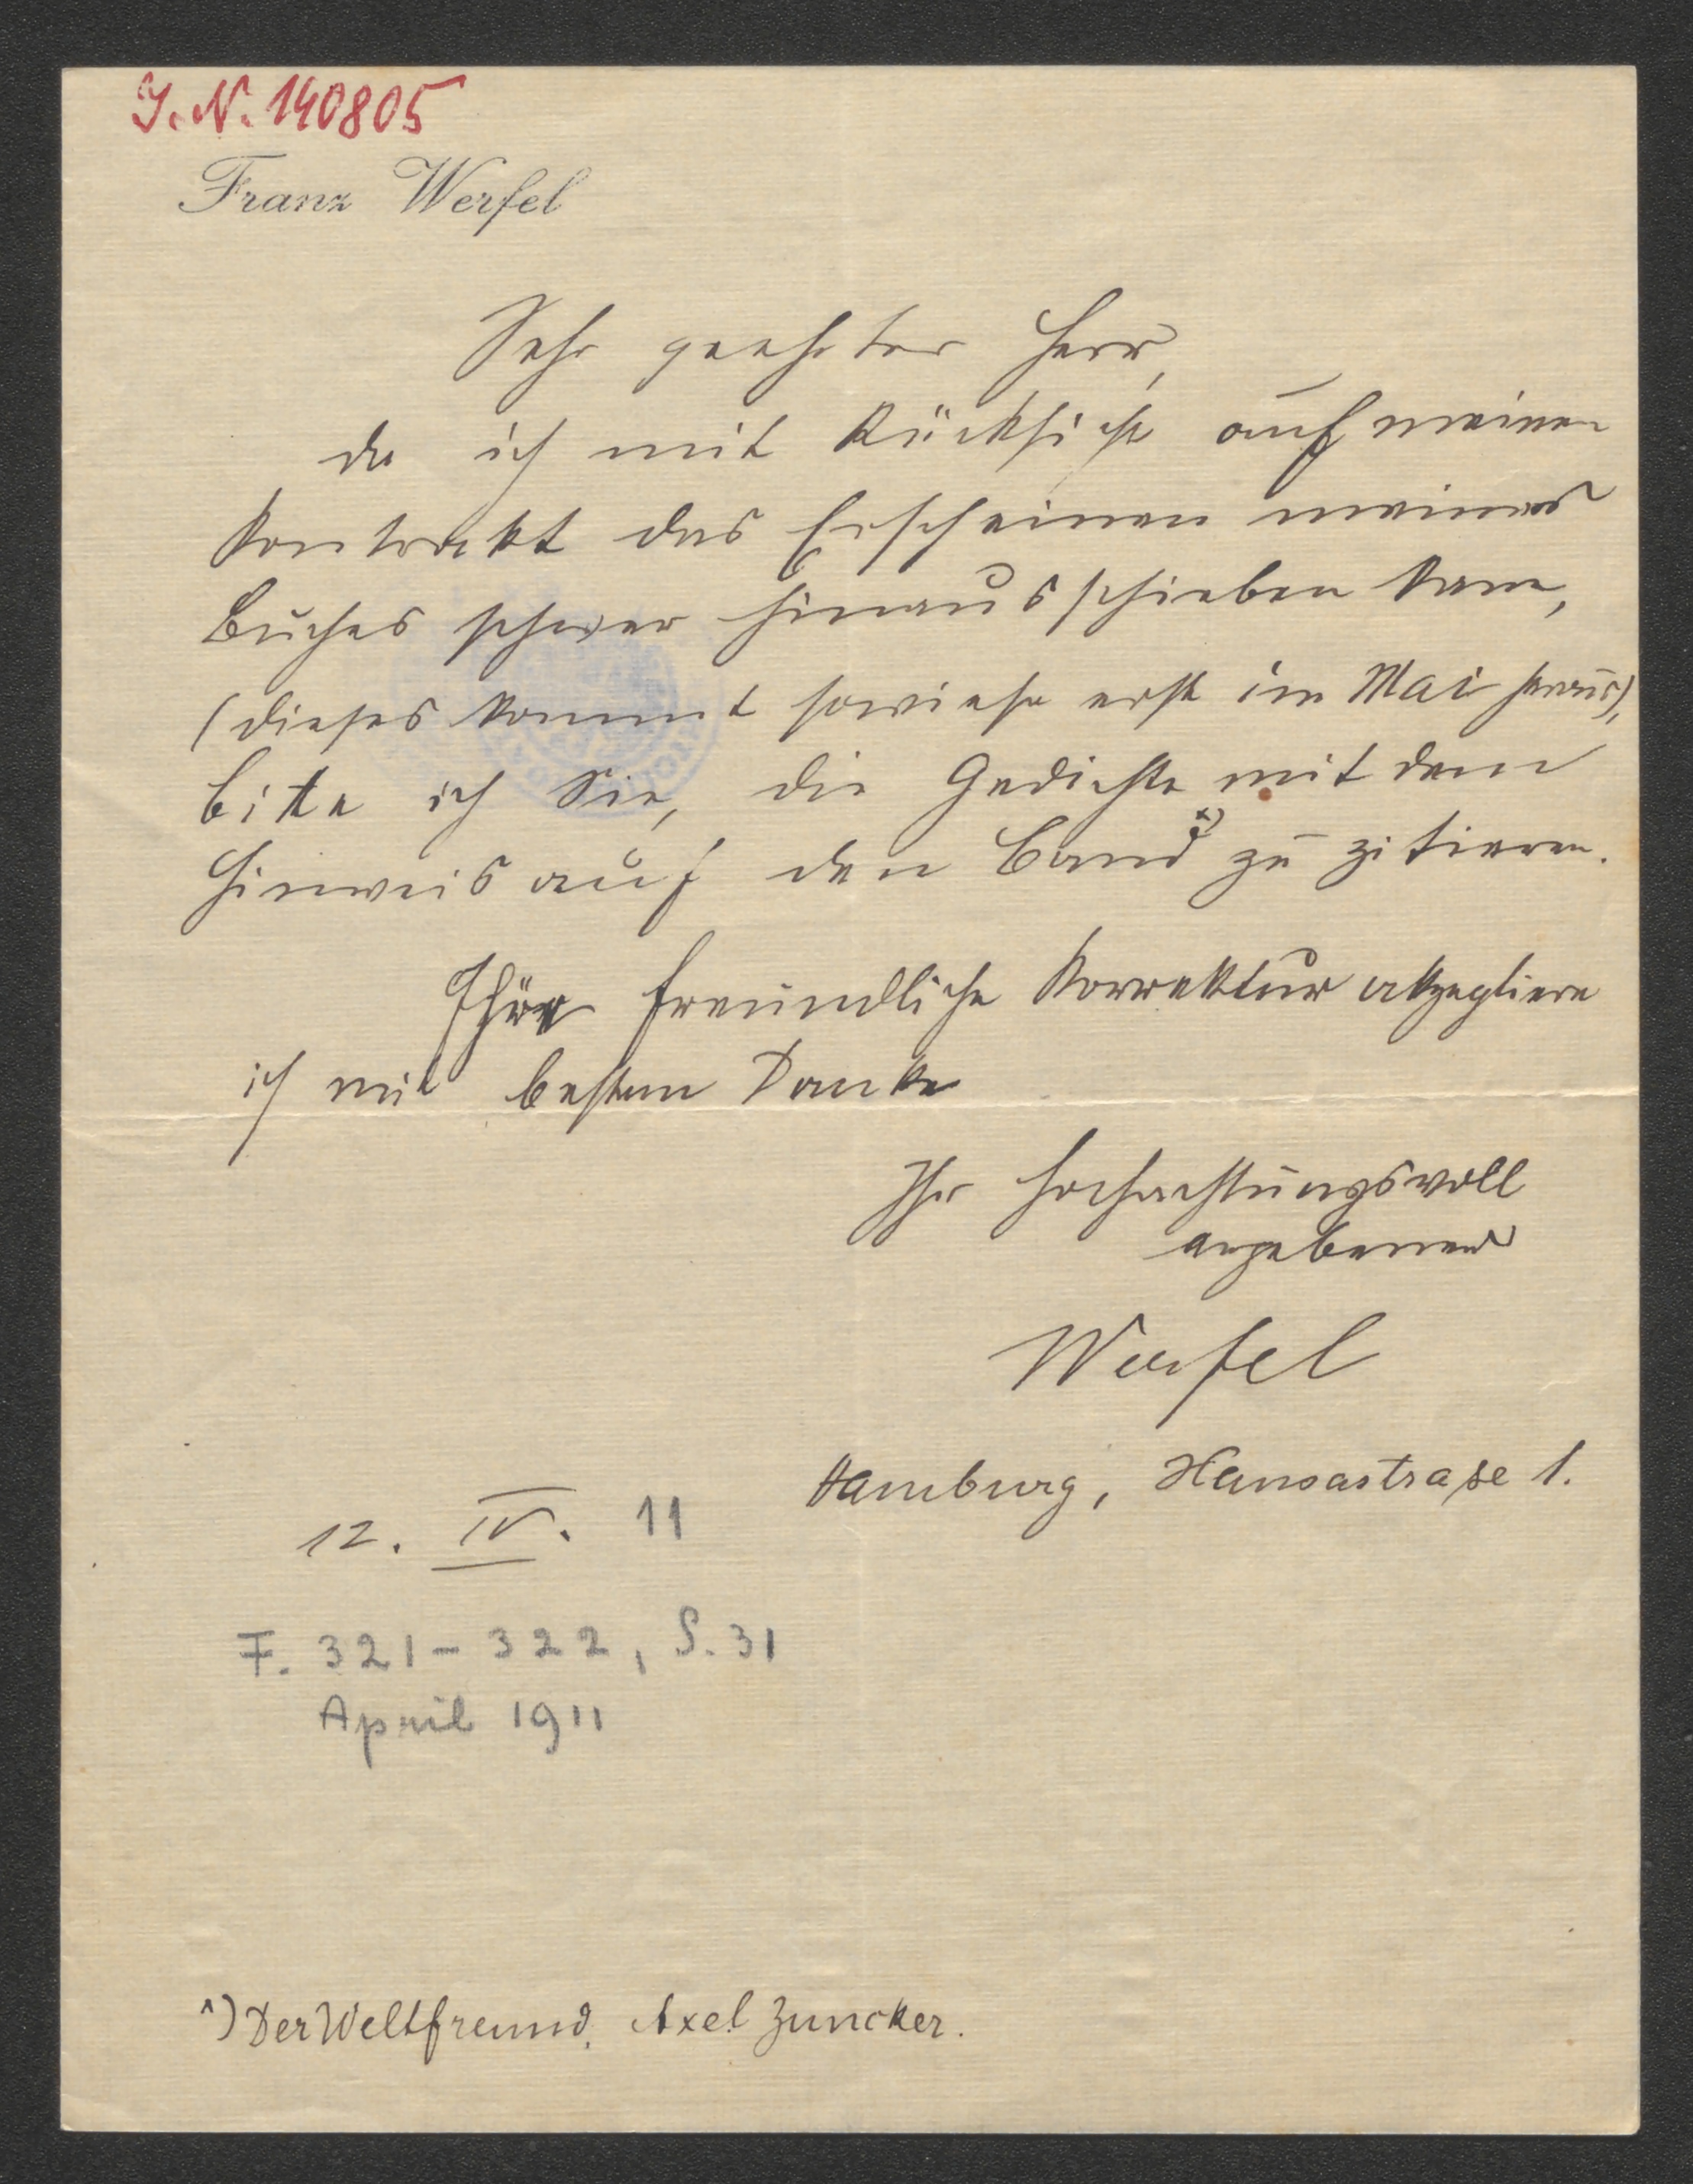 I.N. 140805
Franz Werfel
Sehr geehrter Herr,
da ich mit Rücksicht auf meinen
Kontrakt das Erscheinen meines
Buches schwer hinausschieben kann,
(dieses kommt sowieso erst im Mai heraus),
bitte ich Sie, die Gedichte mit dem
Hinweis auf den Band x) zu zitieren.
Ihre freundliche Korrektur akzeptiere
ich mit bestem Danke
Ihr hochachtungsvoll
ergebener
Werfel
Hamburg, Hansastraße 1.
12. IV. 11
F. 321-322, S. 31
April 1911
x) Der Weltfreund. Axel Juncker.